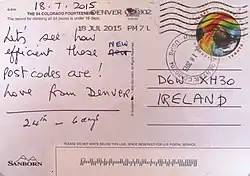 18.7.2015
THE 54 COLORADO FOURTEENERS
DENVER CO 802
The record for climbing all 54 peaks is under 15 days.
18 JUL 2015 PM 7 L
Let's see how
efficient those NEW
post codes are!
here from Denver
24th - 6 days
D6W XH30
IRELAND
PLEASE DO NOT WRITE BELOW THIS LINE. SPACE RESERVED FOR U.S. POSTAL SERVICE.
SANBORN